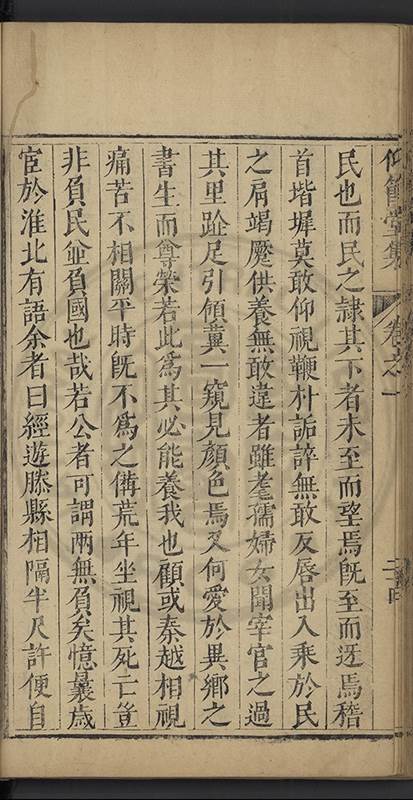 仰節堂集 卷之一 二十四
民也而民之隷其下者未至而望焉旣至而迓焉稽
首堦墀莫敢仰視鞭朴詬誶無敢反唇出入乘於民
之肩竭蹷供養無敢違者雖耄孺婦女聞宰官之過
其里跕足引傾兾一窺見顏色焉夫何愛於異鄉之
書生而尊榮若此爲其必能養我也顧或秦越相視
痛苦不相關平時旣不爲之備荒年坐視其死亡豈
非負民並負國也哉若公者可謂兩無負矣憶曩歲
宦於淮北有語余者曰經遊滕縣相隔半尺許便自